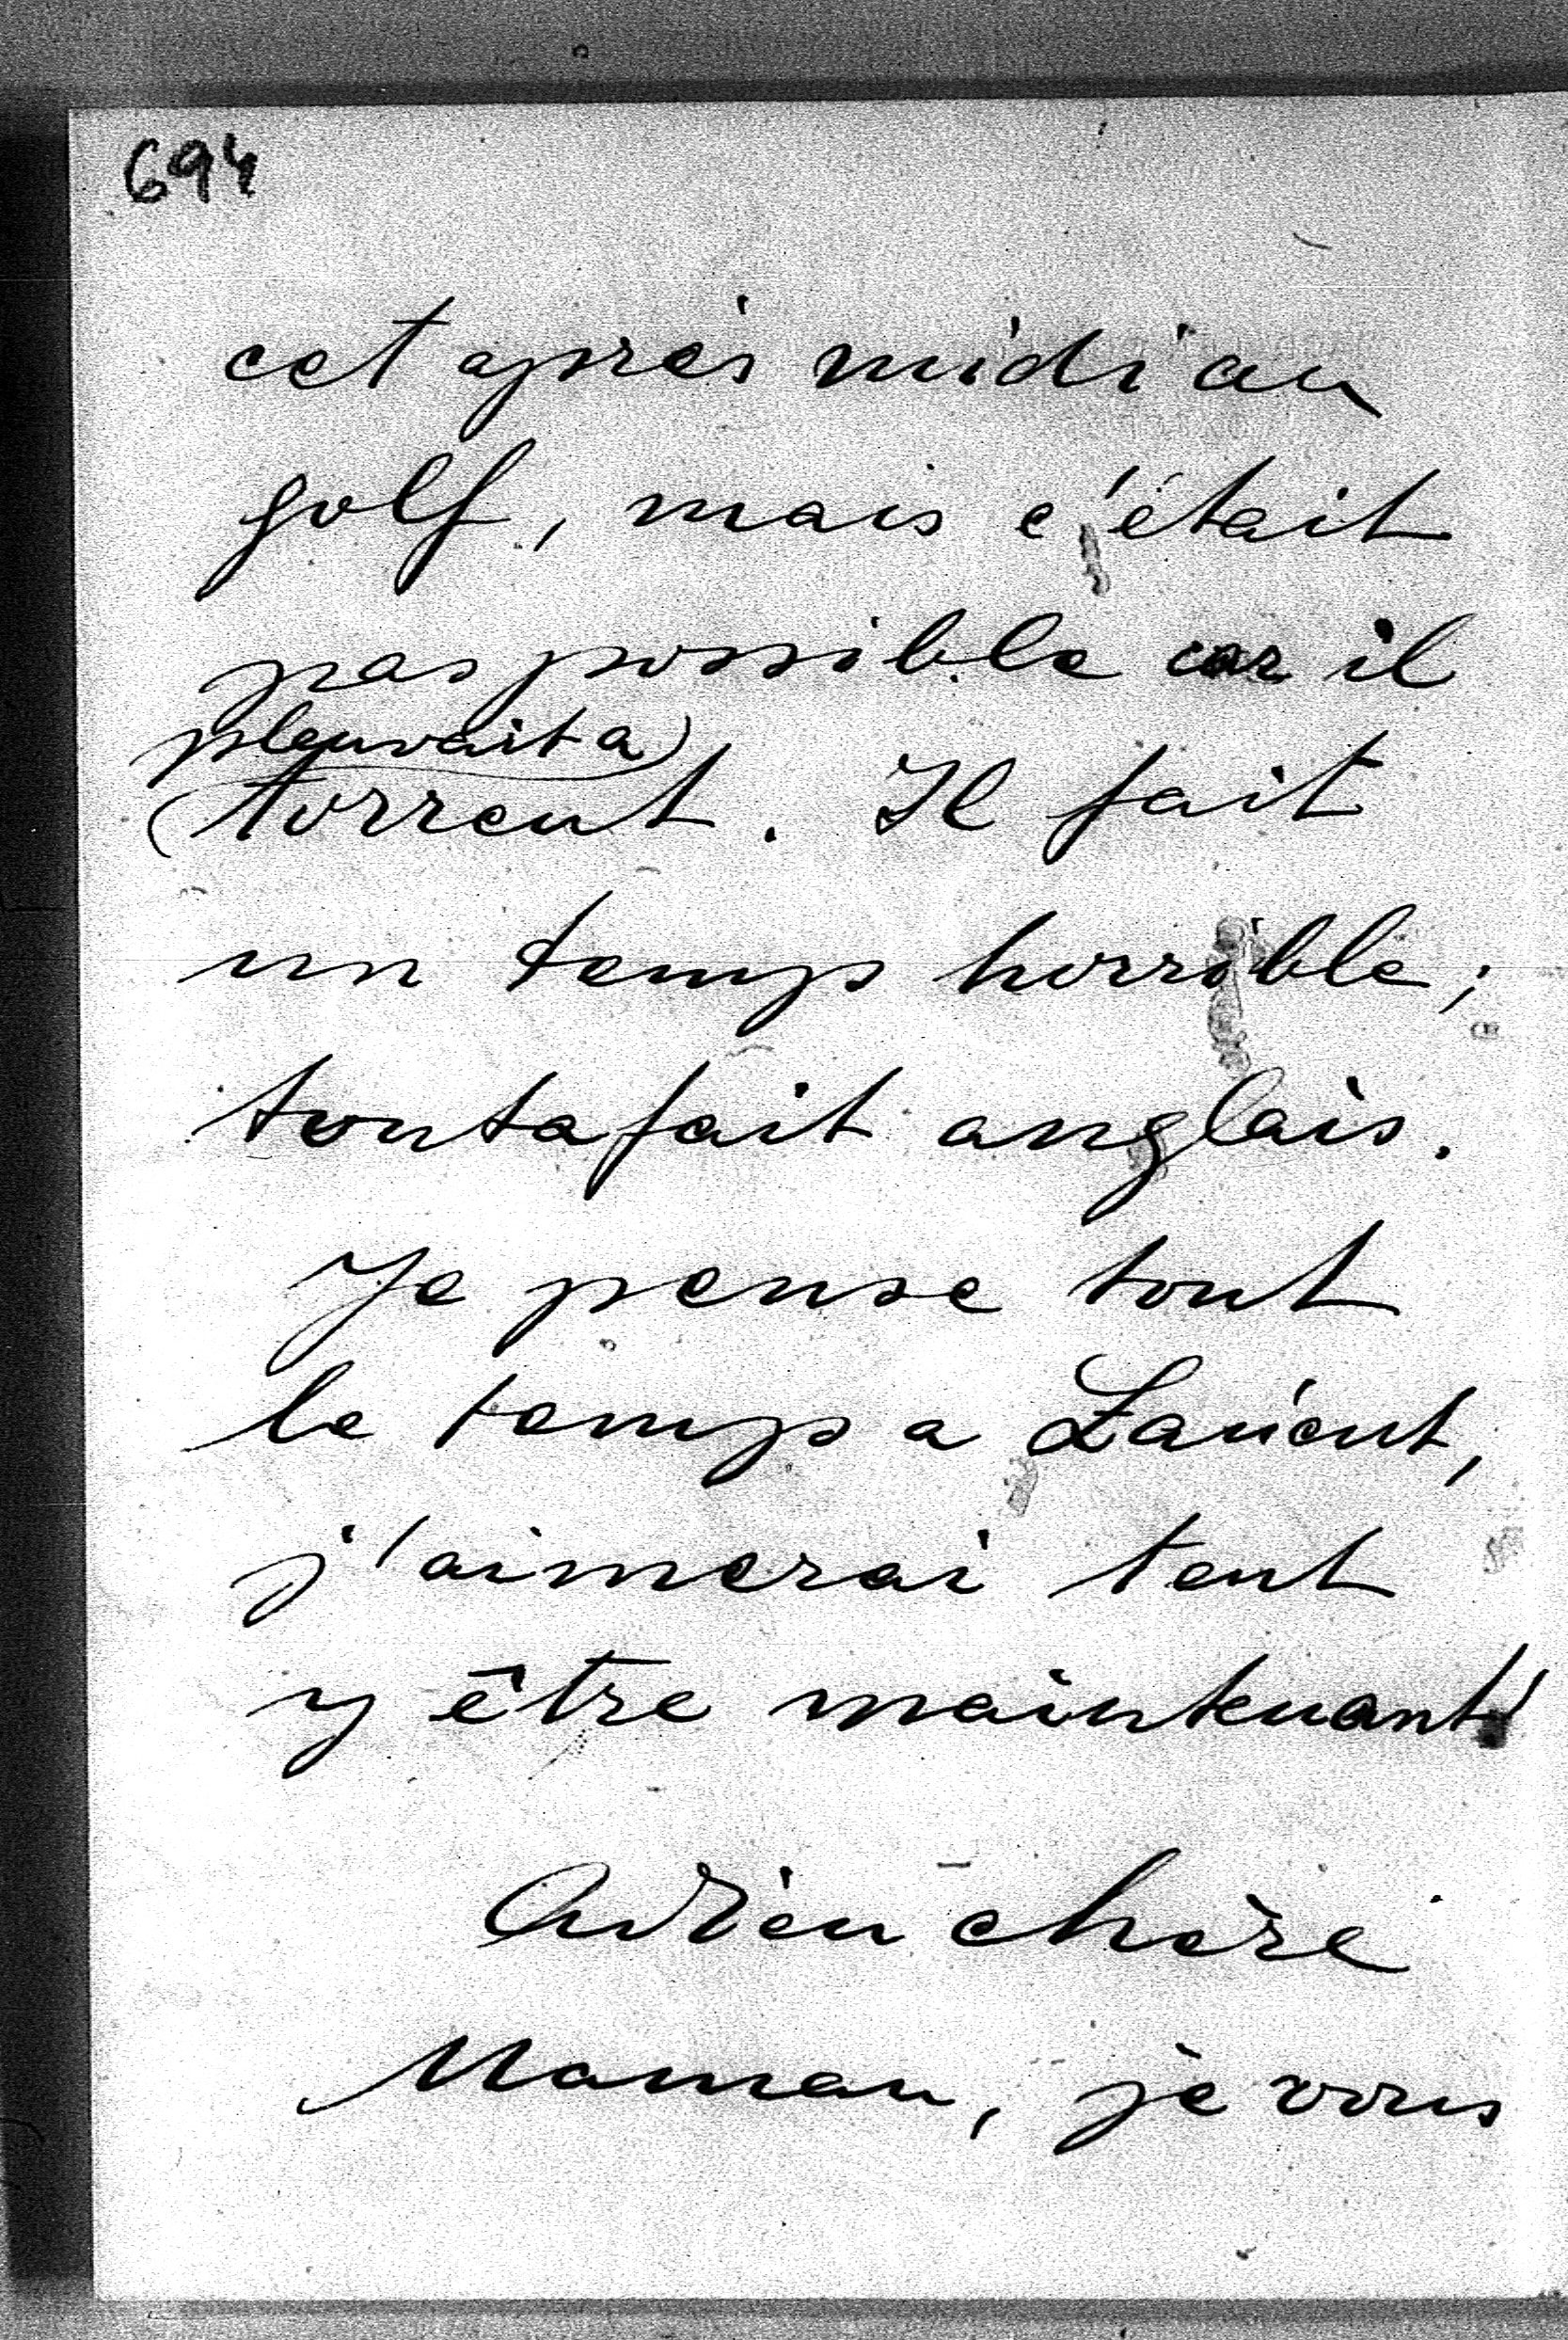 694
cet après midi au
golf, mais c'était
pas possible car il
pleuvait a
torrent. Il fait
un temps horrible;
toutafait anglais.
Je pense tout
le temps a Zarient,
j'aimerai tent
y être maintenant!
Adieu chère
Maman, je vous